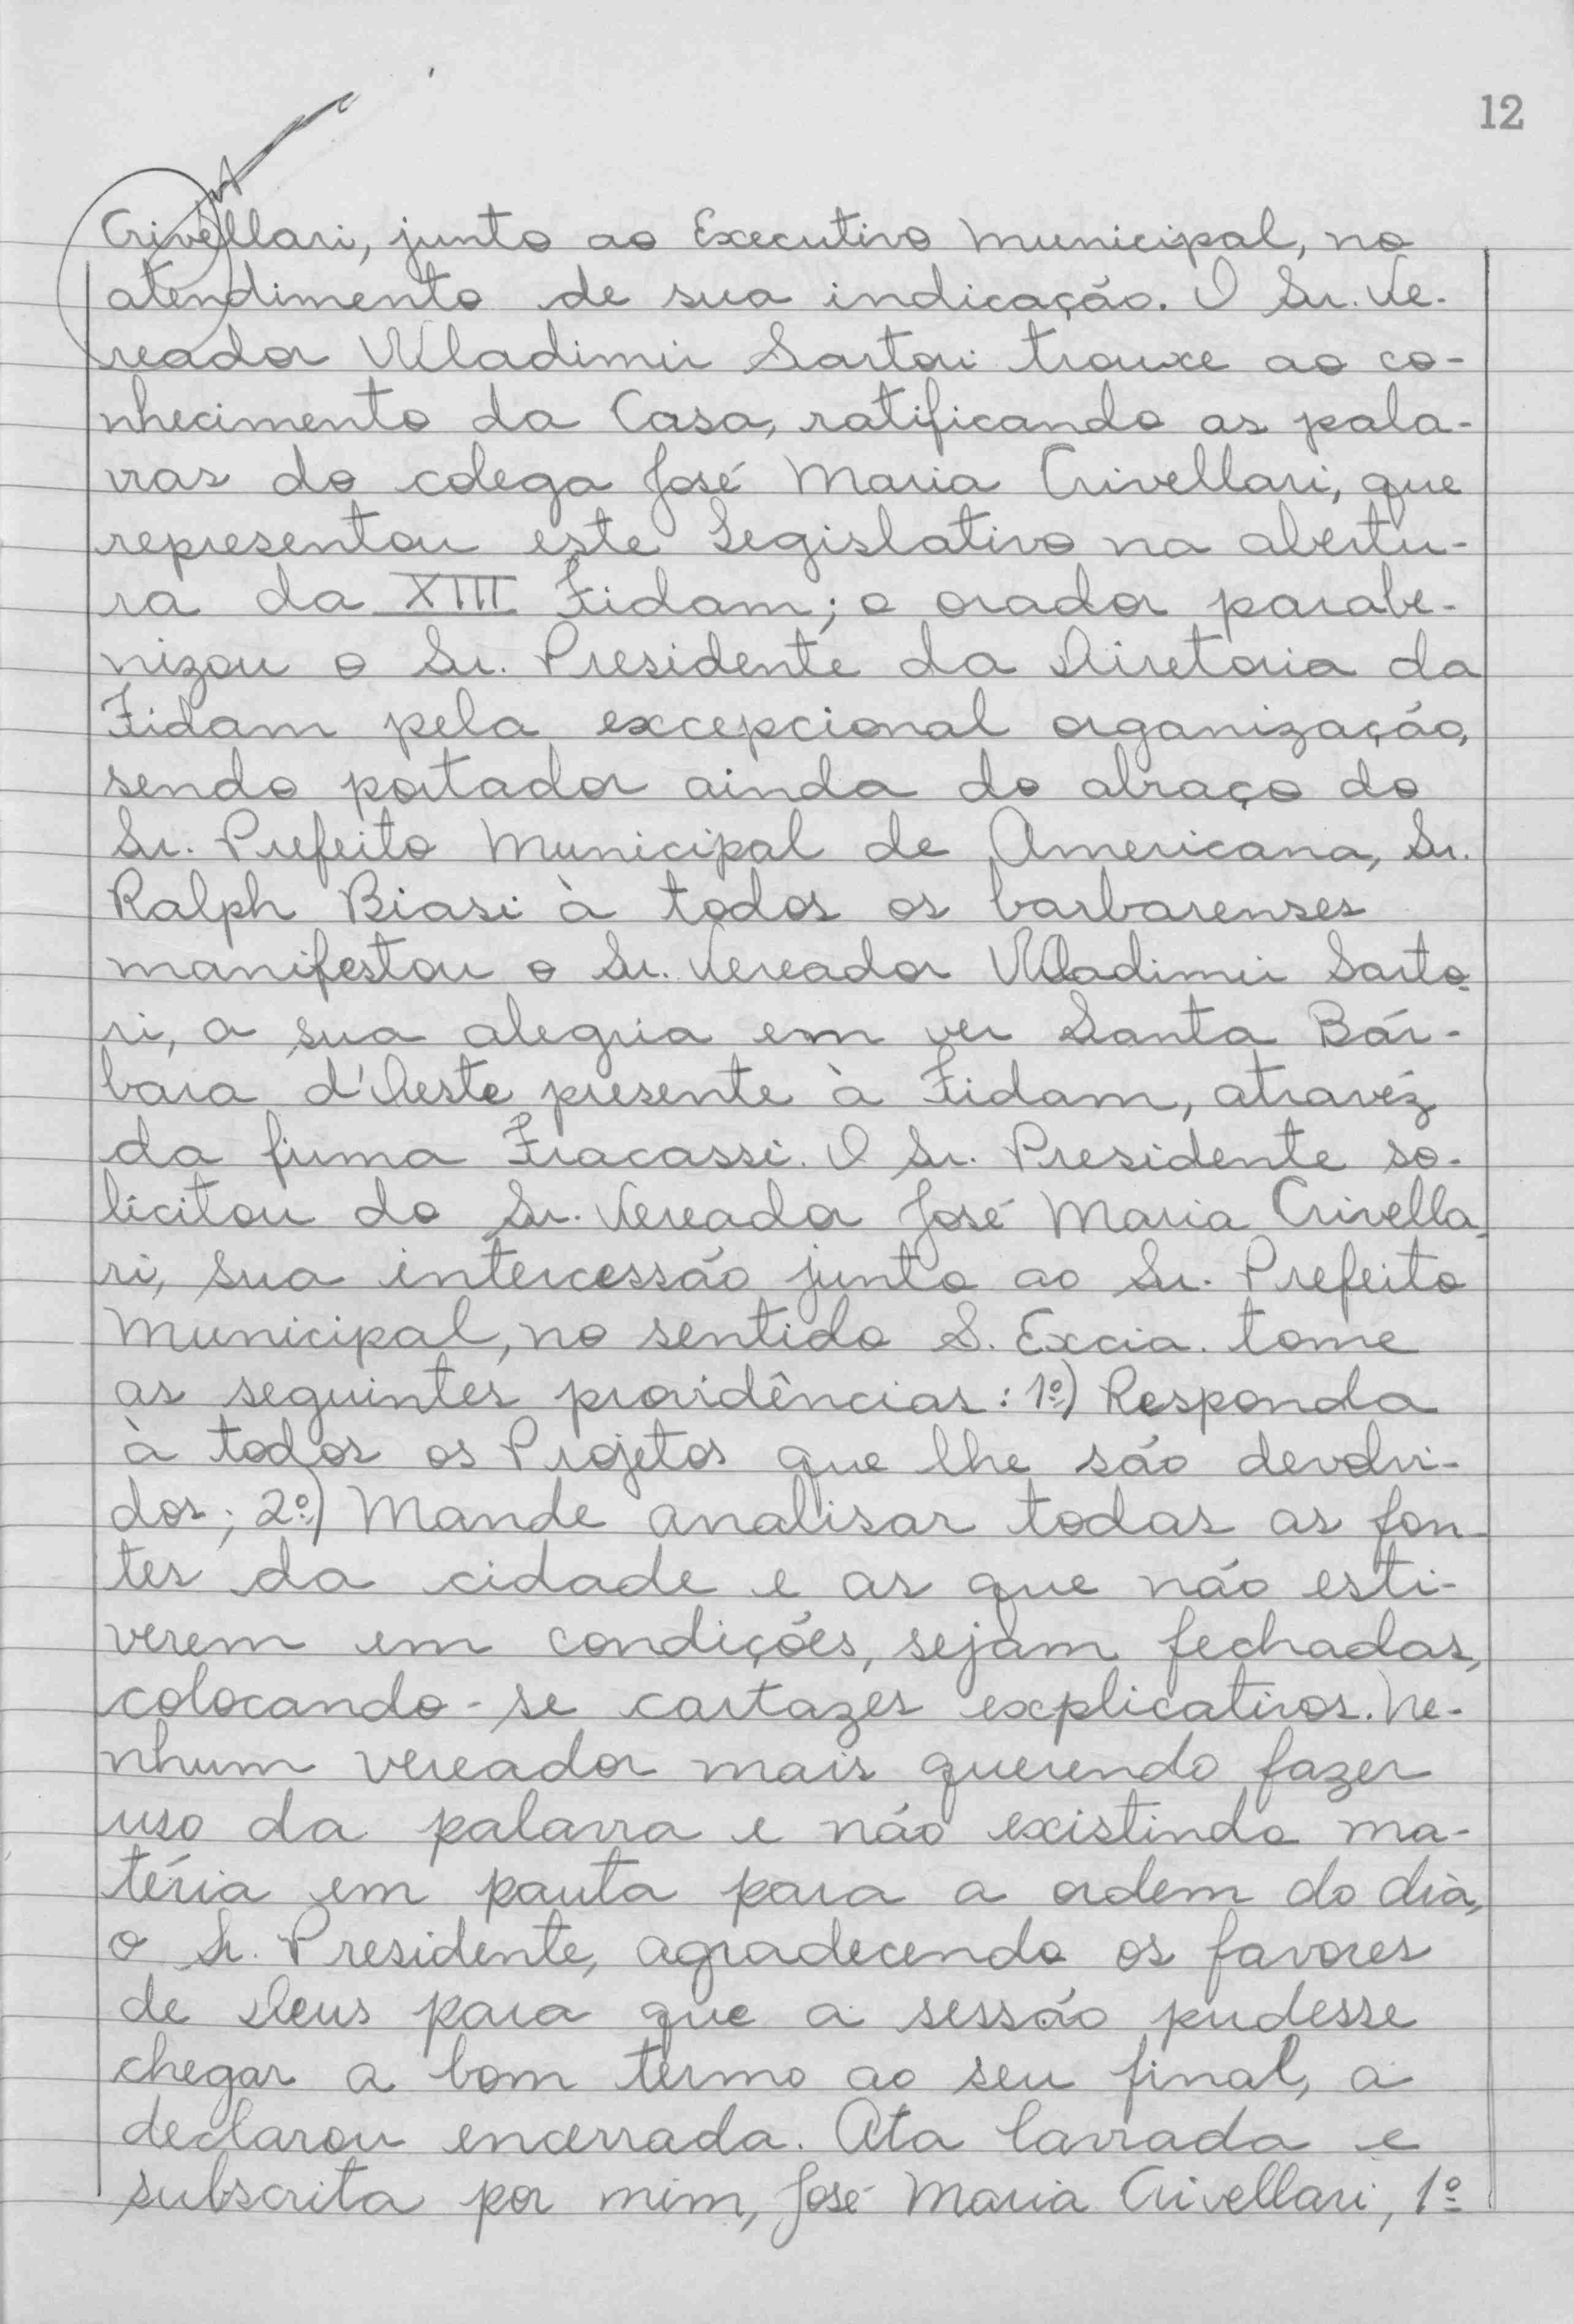 12
Crivellari, junto ao Executivo Municipal, no
atendimento de sua indicação. O Sr. Ve-
reador Wladimir Sartori trouxe ao co-
nhecimento da Casa, ratificando as pala-
vras do colega José Maria Crivellari, que
representou este Legislativo na abertu-
ra da XIII Fidam; o orador parabe-
nizou o Sr. Presidente da Diretoria da
Fidam pela excepcional organização,
sendo portador ainda do abraço do
Sr. Prefeito Municipal de Americana, Sr.
Ralph Biasi à todos os barbarenses
manifestou o Sr. Vereador Wladimir Sarto-
ri, a sua alegria em ver Santa Bár-
bara d'Oeste presente à Fidam, atravéz
da firma Fracassi. O Sr. Presidente so-
licitou do Sr. Vereador José Maria Crivella-
ri, sua intercessão junto ao Sr. Prefeito
Municipal, no sentido S. Excia. tome
as seguintes providências: 1º) Responda
à todos os Projetos que lhe são devolvi-
dos; 2º) Mande analisar todas as fon-
tes da cidade e as que não esti-
verem em condições, sejam fechadas,
colocando-se cartazes explicativos. Ne-
nhum vereador mais querendo fazer
uso da palavra e não existindo ma-
téria em pauta para a ordem do dia,
o Sr. Presidente, agradecendo os favores
de Deus para que a sessão pudesse
chegar a bom termo ao seu final, a
declarou encerrada. Ata lavrada e
subscrita por mim, José Maria Crivellari, 1º